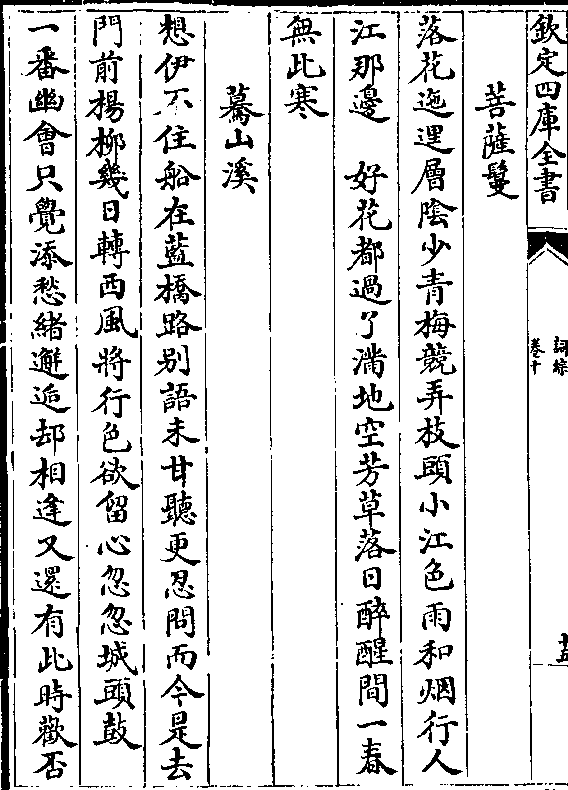 欽定四庫全書
詞綜
卷十
菩薩鬘
落花迤逕層陰少青梅競弄枝頭小江色雨和烟行人
江那邊　好花都過了滿地空芳草落日醉醒間一春
無此寒
驀山溪
想伊不住船在藍橋路别語未甘聽更忍問而今是去
門前楊栁幾日轉西風將行色欲留心忽忽城頭鼓
一番幽會只覺添愁緒邂逅却相逢又還有此時歡否